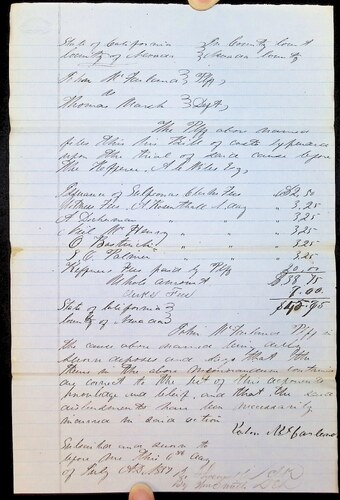 State of California } In County Court
County of } County
John McFarland } Plff,
vs
Thomas March } Deft,
The Plff above named
files this his bill of costs & expenses
upon the trial of said cause before
the Referee, A. C. Niles Esq,
Issuance of Subpoenas Clerks Fees $2.50
Witness Fee, 1 day " 3,25
A " " " 3,25
Neil McHenry " " 3,25
O " " 3,25
E. C. Palmer " " 3.25
Referees Fees paid by Plff 20.00
Whole amount $38.75
Clerks Fees 7.00
State of California }
County of }
John McFarland Plff in
the cause above named being duly
sworn deposes and says that the
items in the above memorandum contained
are correct to the best of this deponents
knowledge and belief, and that the said
disbursements have been necessarily
incurred in said action
John McFarland
Subscribed and sworn to
before me this 6th day
of July A.D. 
By D. C.